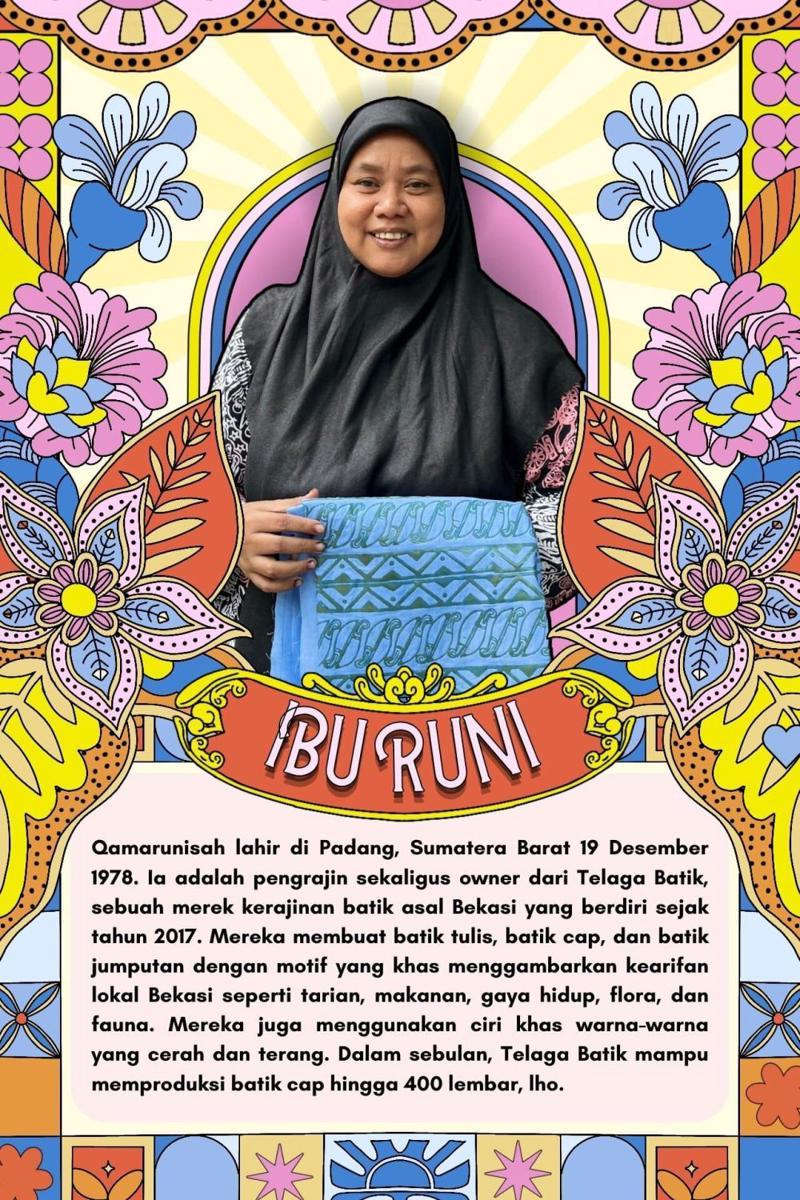 IBU RUNI
Qamarunisah lahir di Padang, Sumatera Barat 19 Desember
1978. Ia adalah pengrajin sekaligus owner dari Telaga Batik,
sebuah merek kerajinan batik asal Bekasi yang berdiri sejak
tahun 2017. Mereka membuat batik tulis, batik cap, dan batik
jumputan dengan motif yang khas menggambarkan kearifan
lokal Bekasi seperti tarian, makanan, gaya hidup, flora, dan
fauna. Mereka juga menggunakan ciri khas warna-warna
yang cerah dan terang. Dalam sebulan, Telaga Batik mampu
memproduksi batik cap hingga 400 lembar, lho.